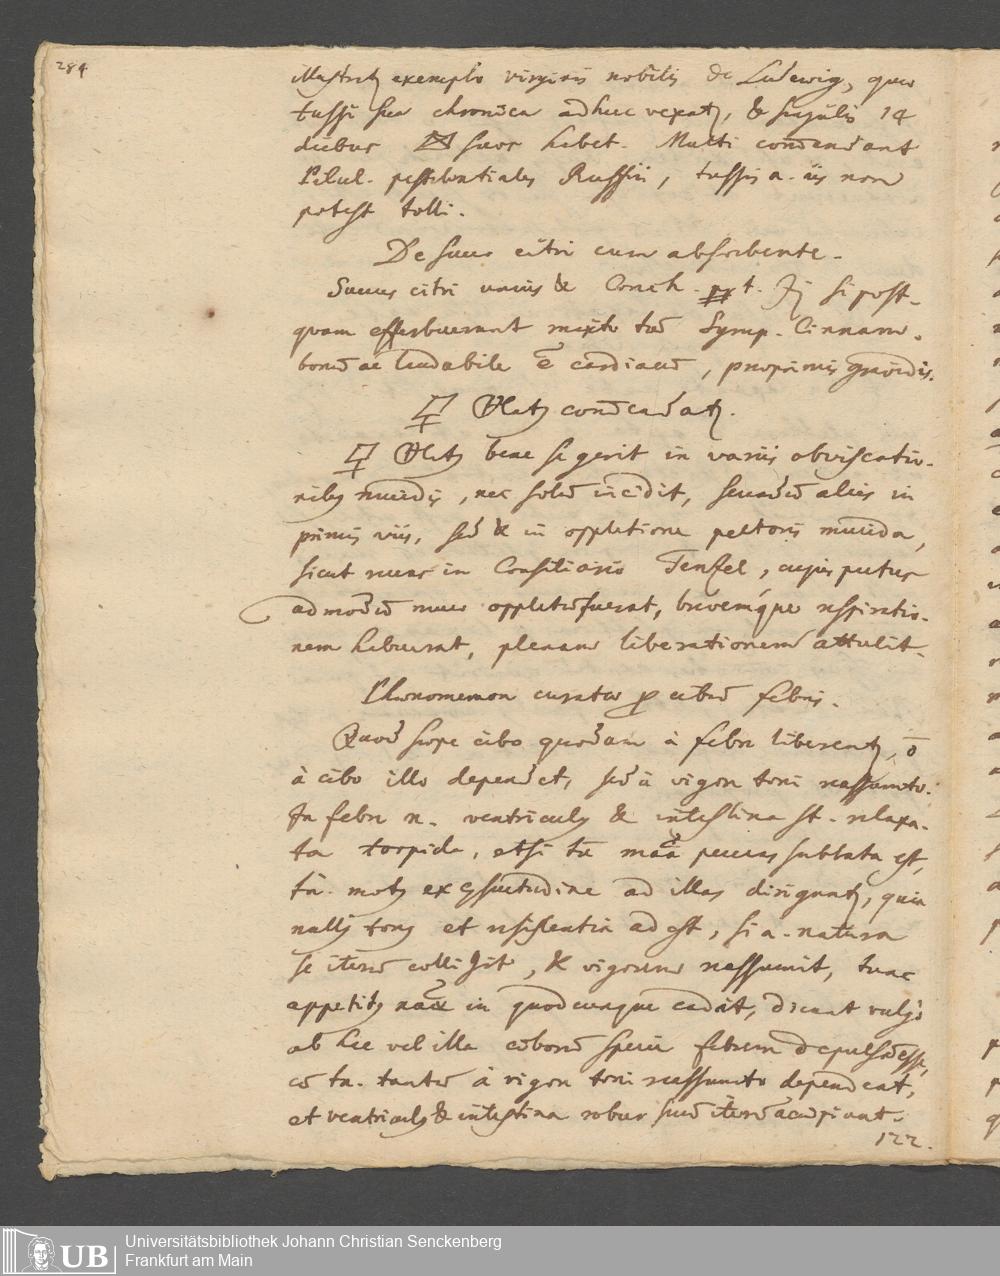 284
illustratq exemplo virginis nobilis de Ludewig, quae
tussi sua chronica adhuc vexatq, & singulis 14
diebus suos habet. Multi com̄endant
Pilul. pestilentiales Ruffii, tussis a. iis non
potest tolli.
De succo citri cum absorbente.
Succus citri unius & Conch. ppt. si post-
quam efferbuerunt mixtu cū Syrup. Cinnam.
bonū ac laudabile ē cardiacū, praeprimis gravidis.
com̄endatq.
bene se gerit in variis obviscatio-
nibq mucidis, nec solū incidit, alvis in
primis viis, sed & in oppletione pectoris mucida,
sicut nunc in Consiliario Tenzel, cujus pectus
admodū muco oppletū fuerat, brevemque respiratio-
nem habuerat, plenam liberationem attulit.
Phaenomenon curatae p cibū febris.
Quod saepe cibo quodam à febri liberentq, ō
à cibo illo dependet, sed à vigore toni reassumto.
In febri n. ventriculq & intestina st. relaxa-
ta torpida, etsi tū mā peccans sublata est,
tn. motq ex consuetudine ad illas dirigantq, quia
nullq tonq et resistentia adest, si a. natura
se iterū colligit, & vigorem reassumit, tunc
appetitq in quodcunque cadat, dicunt vulgo
ab hac vel illa ciborū specie febrem depulsā esse,
cū tn. tantū à vigore toni reassumto dependeat,
et ventriculq & intestina robur suū iterū accipiant.
122.
UB
Universitätsbibliothek Johann Christian Senckenberg
Frankfurt am Main